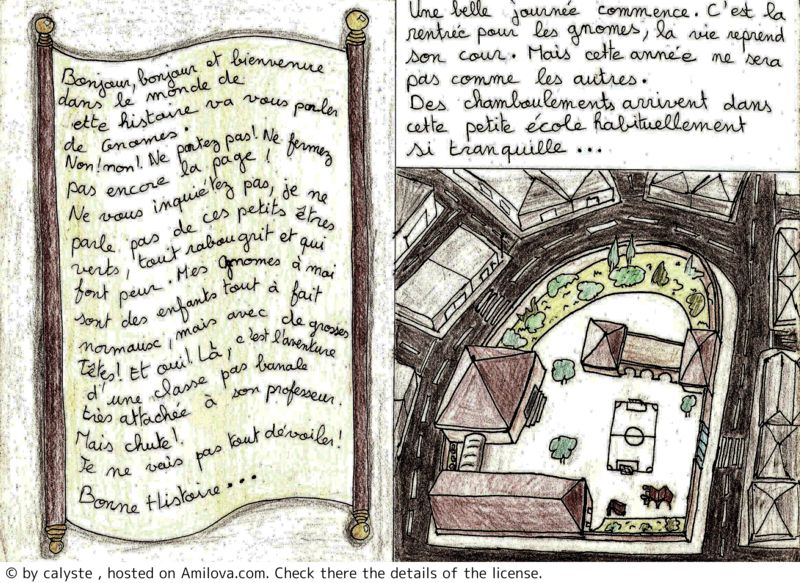 Bonjour, bonjour et bienvenue
dans le monde de
cette histoire va vous parler
de Gnomes.
Non! non! Ne partez pas! Ne fermez
pas encore la page!
Ne vous inquiétez pas, je ne
parle pas de ces petits êtres
verts, tout rabougrit et qui
font peur. Mes gnomes à moi
sont des enfants tout à fait
normaux, mais avec de grosses
Têtes! Et oui! Là, c'est l'aventure
d'une classe pas banale
très attachée à son professeur.
Mais chute!
Je ne vais pas tout dévoiler!
Bonne Histoire...
Une belle journée commence. C'est la
rentrée pour les gnomes, la vie reprend
son cour. Mais cette année ne sera
pas comme les autres.
Des chamboulements arrivent dans
cette petite école habituellement
si tranquille ...
© by calyste , hosted on Amilova.com. Check there the details of the license.